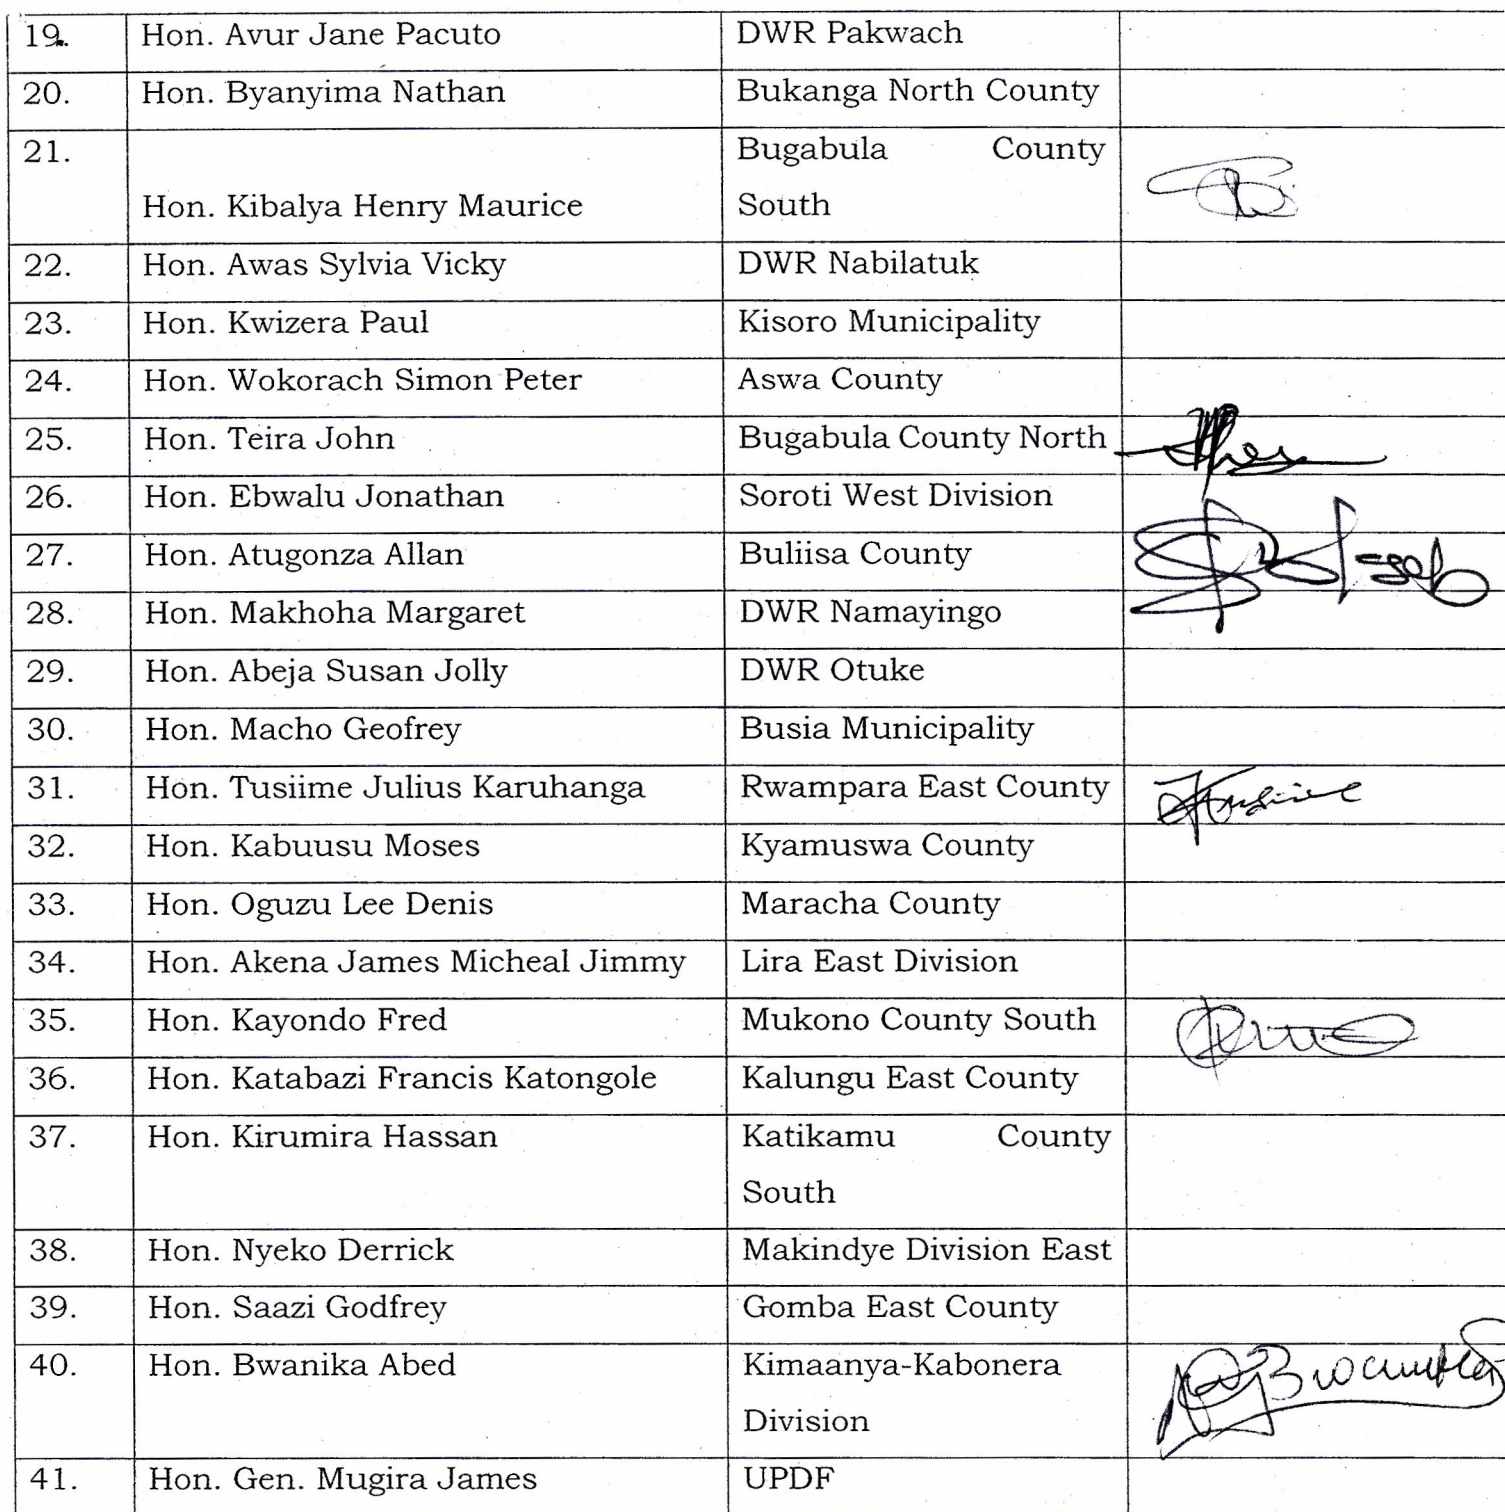 19. Hon. Avur Jane Pacuto DWR Pakwach
20. Hon. Byanyima Nathan Bukanga North County
21. Bugabula County
Hon. Kibalya Henry Maurice South
22. Hon. Awas Sylvia Vicky DWR Nabilatuk
23. Hon. Kwizera Paul Kisoro Municipality
24. Hon. Wokorach Simon Peter Aswa County
25. Hon. Teira John Bugabula County North
26. Hon. Ebwalu Jonathan Soroti West Division
27. Hon. Atugonza Allan Buliisa County
28. Hon. Makhoha Margaret DWR Namayingo
29. Hon. Abeja Susan Jolly DWR Otuke
30. Hon. Macho Geofrey Busia Municipality
31. Hon. Tusiime Julius Karuhanga Rwampara East County
32. Hon. Kabuusu Moses Kyamuswa County
33. Hon. Oguzu Lee Denis Maracha County
34. Hon. Akena James Micheal Jimmy Lira East Division
35. Hon. Kayondo Fred Mukono County South
36. Hon. Katabazi Francis Katongole Kalungu East County
37. Hon. Kirumira Hassan Katikamu County
South
38. Hon. Nyeko Derrick Makindye Division East
39. Hon. Saazi Godfrey Gomba East County
40. Hon. Bwanika Abed Kimaanya-Kabonera
Division
41. Hon. Gen. Mugira James UPDF